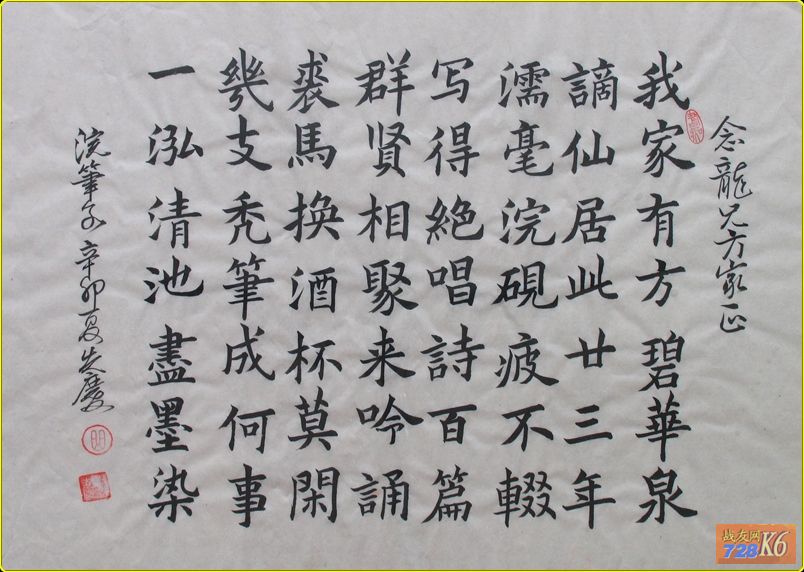 念龍兄方家正
我家有方碧華泉
謫仙居此廿三年
濡毫浣硯疲不輟
写得絕唱詩百篇
群贤相聚来吟誦
裘馬換酒杯莫閑
幾支禿筆成何事
一泓清池盡墨染
浣筆子 辛卯夏 慶
明
战友网
728 K6